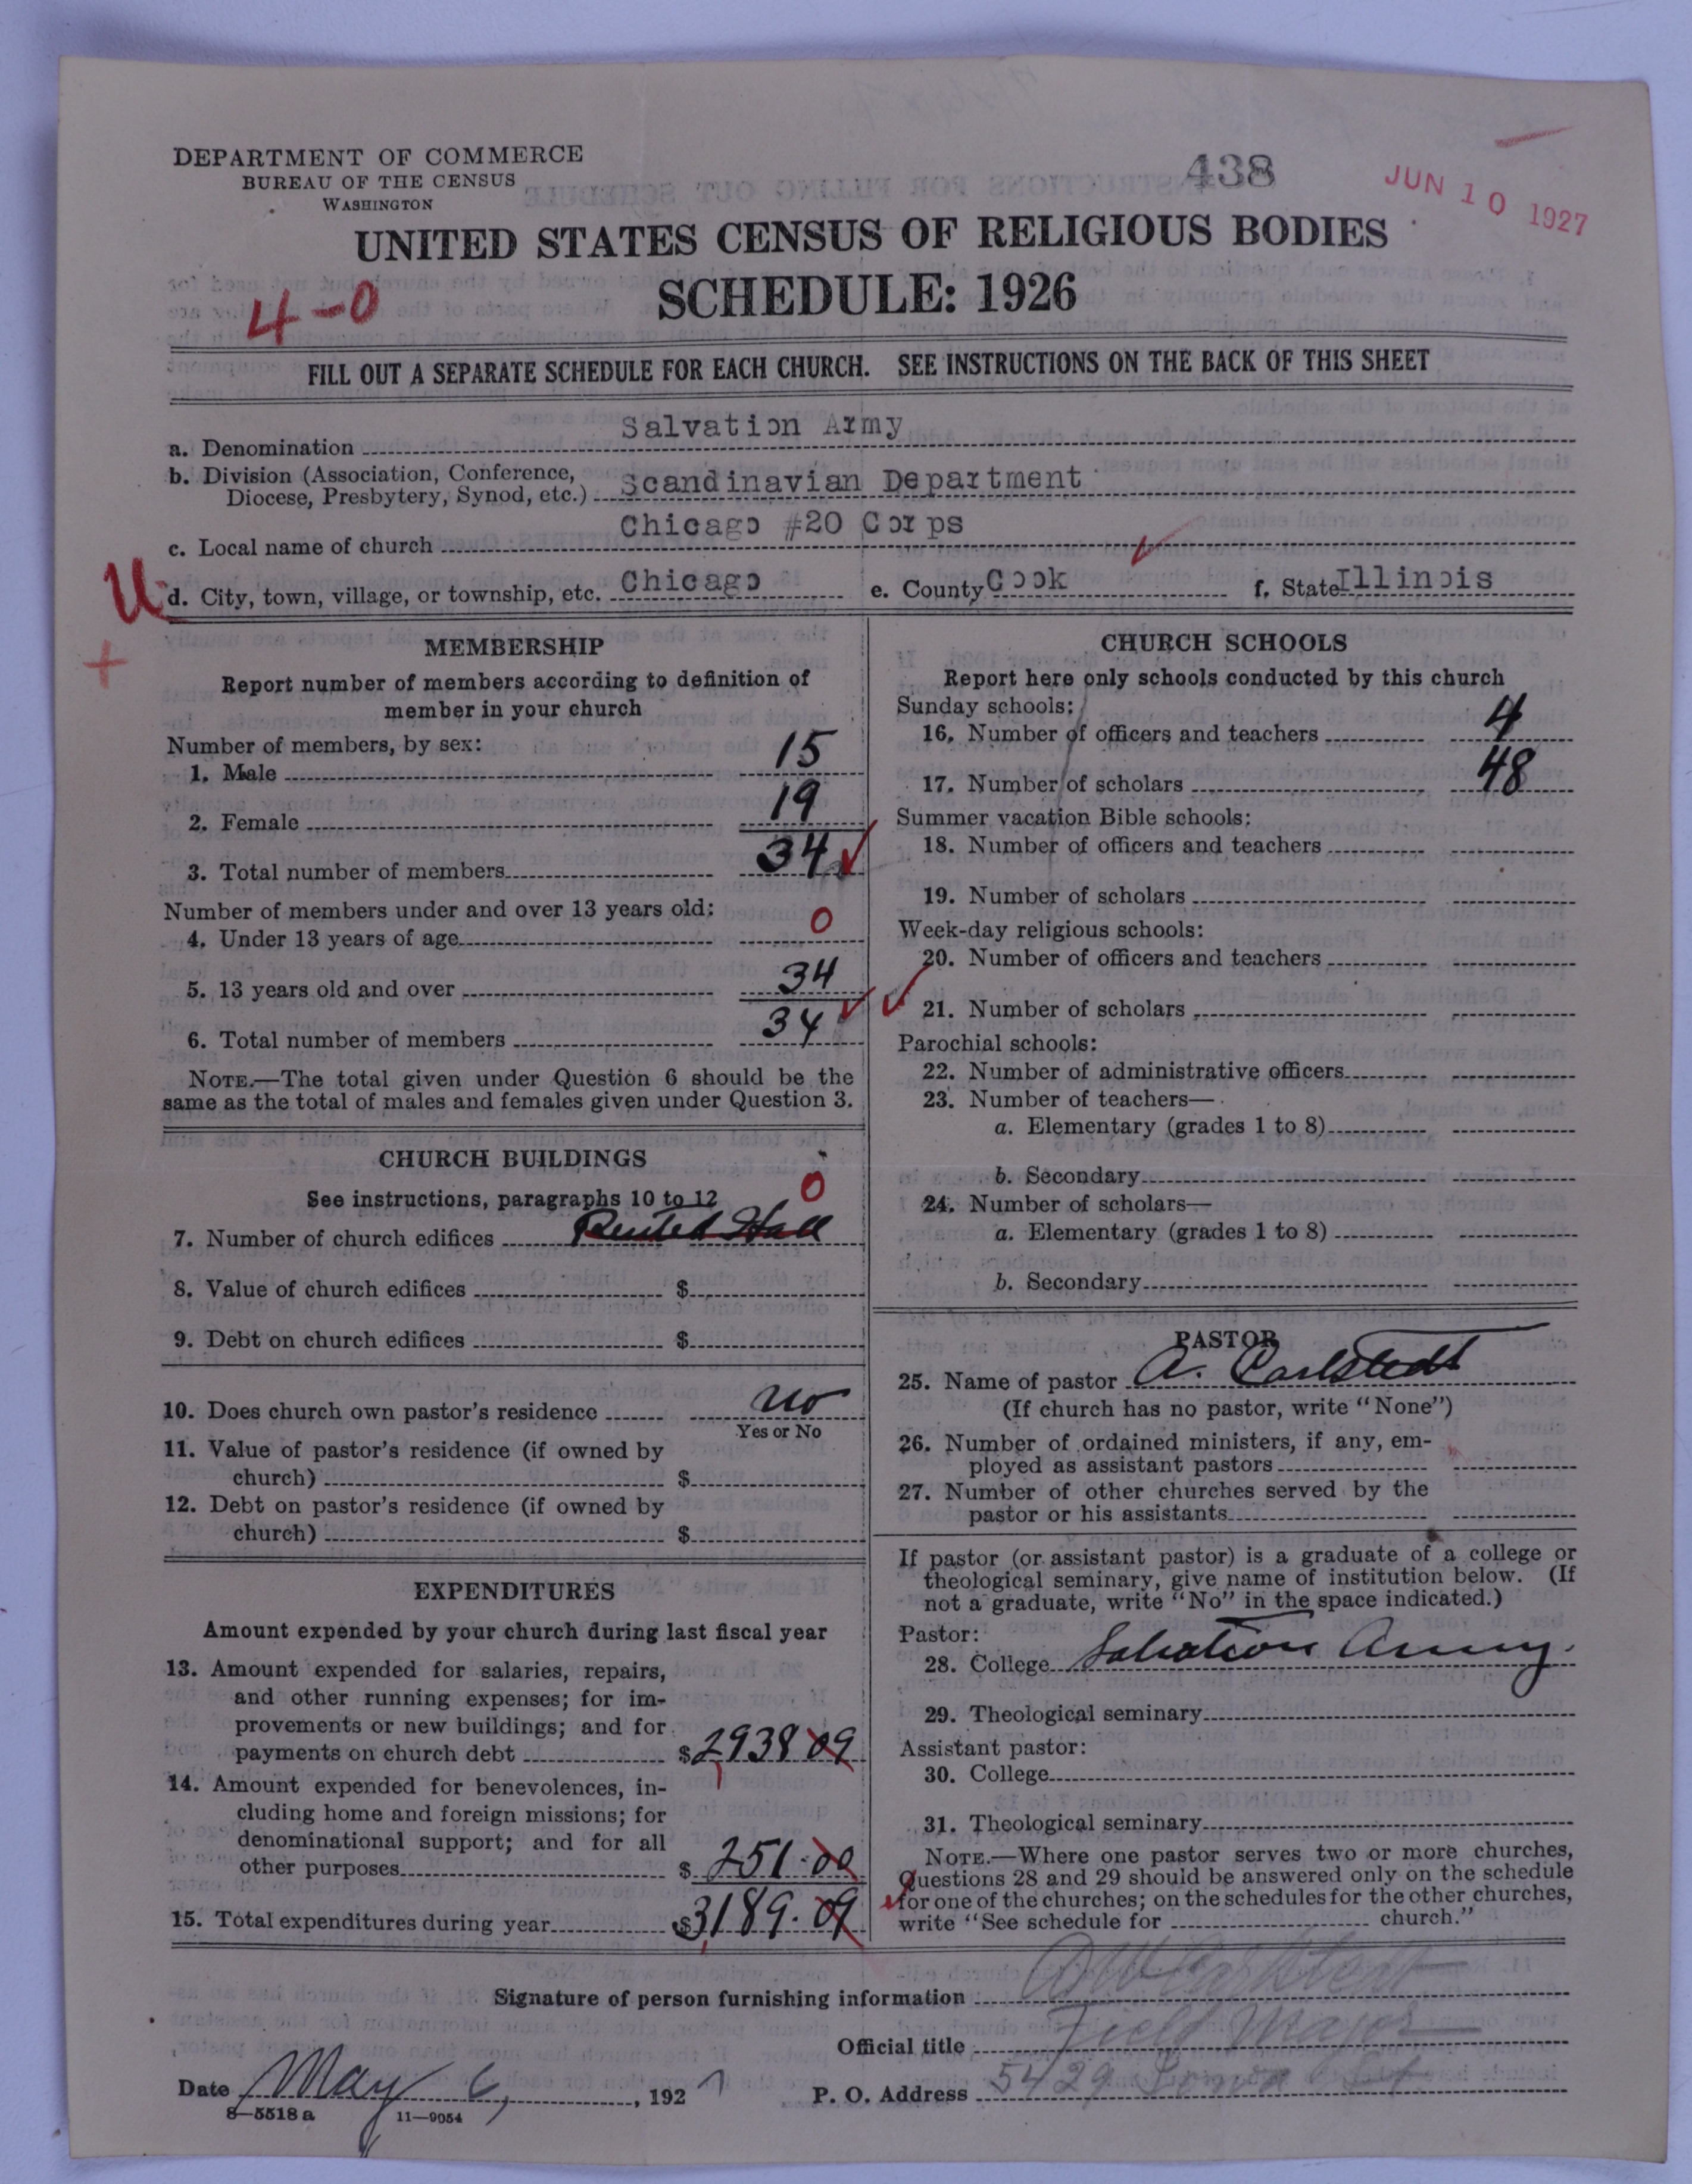 DEPARTMENT OF COMMERCE
BUREAU OF THE CENSUS
WASHINGTON
438
JUN 10 1927
UNITED STATES CENSUS OF RELIGIOUS BODIES
SCHEDULE: 1926
4-0
FILL OUT A SEPARATE SCHEDULE FOR EACH CHURCH. SEE INSTRUCTIONS ON THE BACK OF THIS SHEET
a. Denomination Salvation Army
b. Division (Association, Conference,
Diocese, Presbytery, Synod, etc.) Scandinavian Department
c. Local name of church Chicago #20 Corps
U d. City, town, village, or township, etc. Chicago e. County Cook f. State Illinois
MEMBERSHIP
Report number of members according to definition of
member in your church
Number of members, by sex:
1. Male 15
2. Female 19
3. Total number of members 34
Number of members under and over 13 years old:
4. Under 13 years of age 0
5. 13 years old and over 34
6. Total number of members 34
NOTE.—The total given under Question 6 should be the
same as the total of males and females given under Question 3.
CHURCH BUILDINGS
See instructions, paragraphs 10 to 12 0
7. Number of church edifices Rented Hall
8. Value of church edifices $
9. Debt on church edifices $
10. Does church own pastor's residence No
Yes or No
11. Value of pastor's residence (if owned by
church) $
12. Debt on pastor's residence (if owned by
church) $
EXPENDITURES
Amount expended by your church during last fiscal year
13. Amount expended for salaries, repairs,
and other running expenses; for im-
provements or new buildings; and for
payments on church debt $2938 09
14. Amount expended for benevolences, in-
cluding home and foreign missions; for
denominational support; and for all
other purposes $ 251.00
15. Total expenditures during year $3189.09
CHURCH SCHOOLS
Report here only schools conducted by this church
Sunday schools:
16. Number of officers and teachers 4
17. Number of scholars 48
Summer vacation Bible schools:
18. Number of officers and teachers
19. Number of scholars
Week-day religious schools:
20. Number of officers and teachers
21. Number of scholars
Parochial schools:
22. Number of administrative officers
23. Number of teachers—
a. Elementary (grades 1 to 8)
b. Secondary
24. Number of scholars—
a. Elementary (grades 1 to 8)
b. Secondary
PASTOR
25. Name of pastor A. Carlstedt
(If church has no pastor, write "None")
26. Number of ordained ministers, if any, em-
ployed as assistant pastors
27. Number of other churches served by the
pastor or his assistants
If pastor (or assistant pastor) is a graduate of a college or
theological seminary, give name of institution below. (If
not a graduate, write "No" in the space indicated.)
Pastor:
28. College Salvation Army.
29. Theological seminary
Assistant pastor:
30. College
31. Theological seminary
NOTE.—Where one pastor serves two or more churches,
Questions 28 and 29 should be answered only on the schedule
for one of the churches; on the schedules for the other churches,
write "See schedule for church."
Signature of person furnishing information
Official title Field Major
Date May 6, 1927 P. O. Address 5429
8—5518 a 11—9054